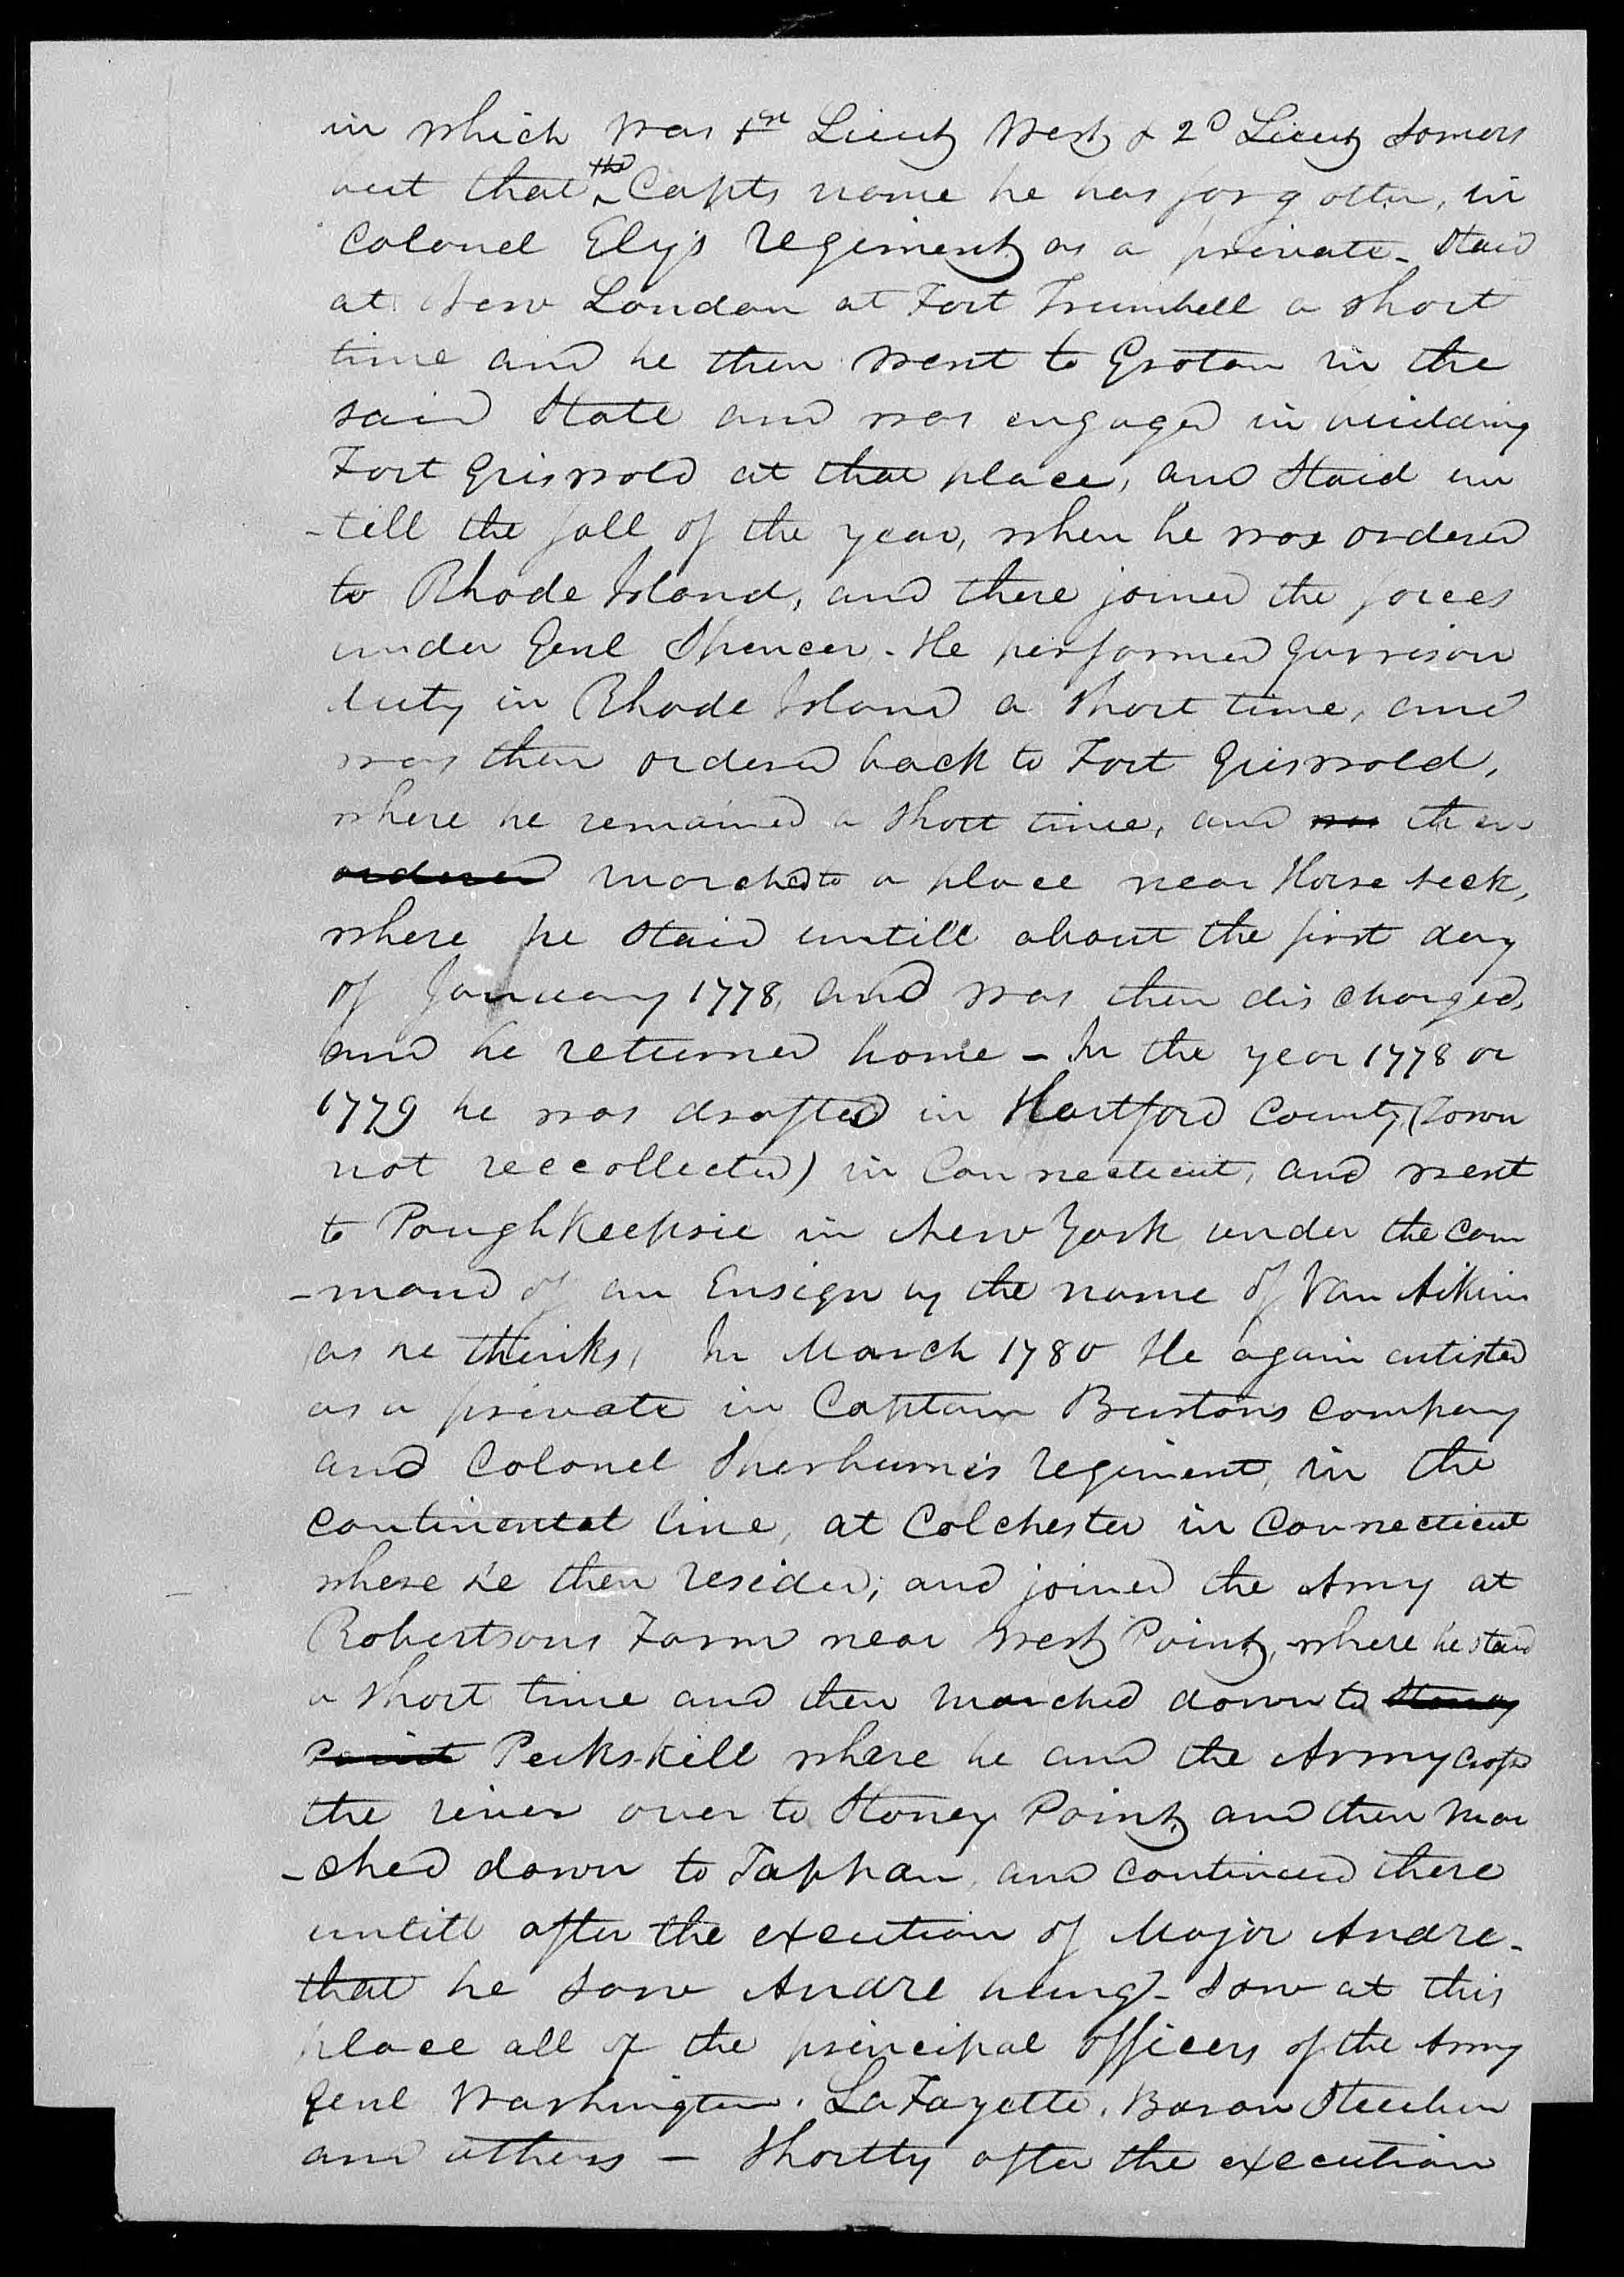 in which was 1st Lieut West & 2d Lieut Somers
but that the Capts name he has forgotten, in
Colonel Ely's regiment as a private - Staid
at New London at Fort Trumbell a short
time and he then went to Groton in the
said State and was engaged in building
Fort Griswold at that place, and Staid un
-till the fall of the year, when he was ordered
to Rhode Island, and there joined the forces
under Genl Spencer - He performed garrison
duty in Rhode Island a short time, and
was then ordered back to Fort Griswold,
where he remained a short time, and was then
ordered marched to a place near Horse neck,
where he staid untill about the first day
of January 1778, and was then discharged,
and he returned home - In the year 1778 or
1779 he was drafted in Hartford County (Town
not reccollected) in Connecticut, and went
to Poughkeepsie in New York under the com
-mand of an Ensign by the name of Van Aikin
as he thinks, In March 1780 He again entisted
as a private in Captain Burtons company
and Colonel Sherburnes regiment, in the
continental line, at Colchester in Connecticut
where he then resided; and joined the Army at
Robertsons Farm near West Point, where he staid
a short time and then marched down to Stoney
Point Peekskill where he and the Army crossd
the river over to Stoney Point and then mar
-ched down to Tappan, and continued there
untill after the execution of Major Andre -
that he saw Andre hung - saw at this
place all of the principal officers of the Army
Genl Washington. LaFayette. Baron Steuben
and others - Shortly after the execution